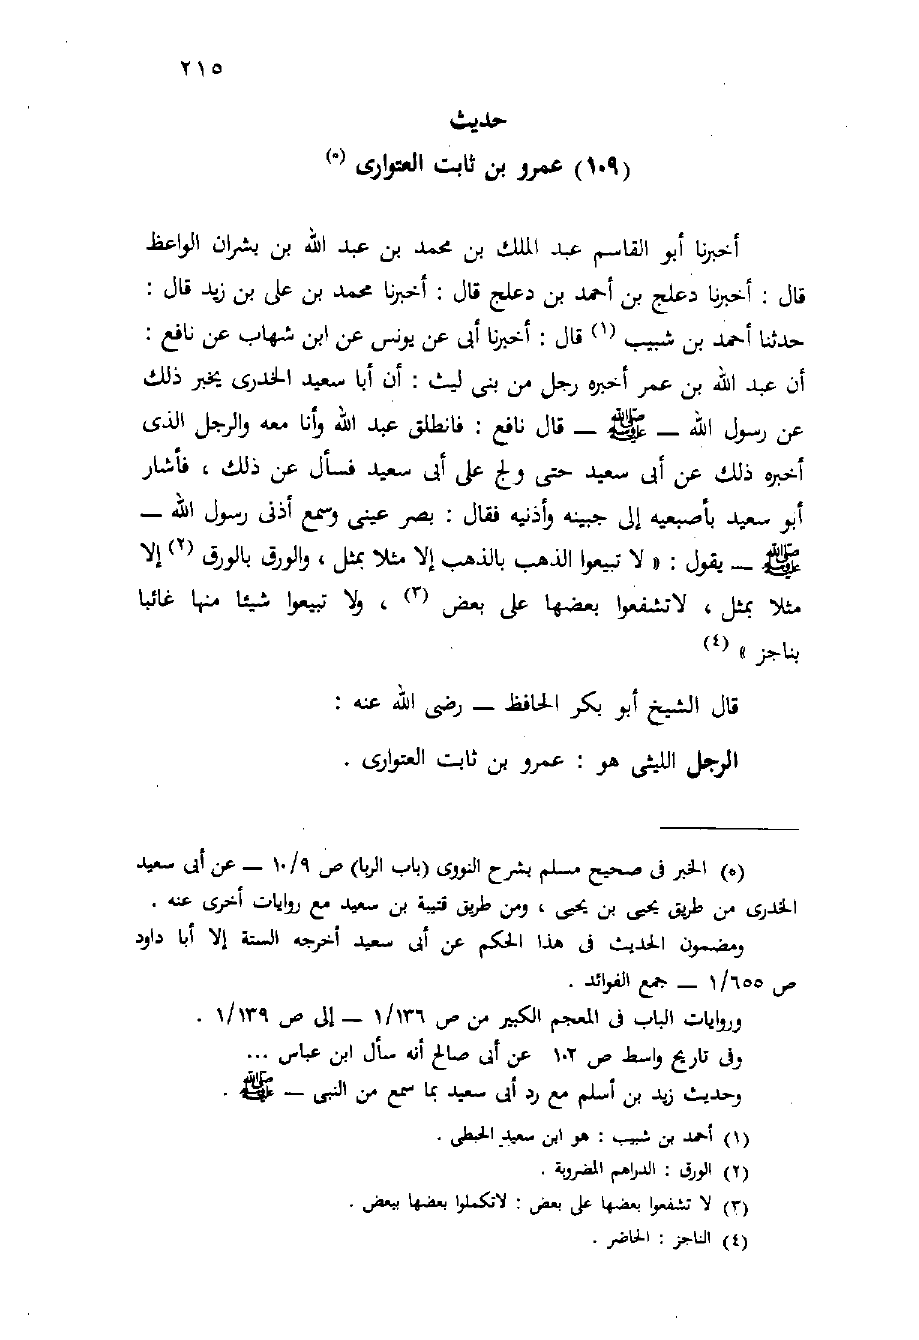 ٢١٥
حديث
(١٠٩) عمرو بن ثابت العتوارى (٥)
أخبرنا أبو القاسم عبد الملك بن محمد بن عبد الله بن بشران الواعظ
قال : أخبرنا دعلج بن أحمد بن دعلج قال : أخبرنا محمد بن على بن زيد قال :
حدثنا أحمد بن شبيب (١) قال : أخبرنا أبى عن يونس عن ابن شهاب عن نافع :
أن عبد الله بن عمر أخبره رجل من بنى ليث : أن أبا سعيد الخدرى يخبر ذلك
عن رسول الله — ﷺ — قال نافع : فانطلق عبد الله وأنا معه والرجل الذى
أخبره ذلك عن أبى سعيد حتى ولج على أبى سعيد فسأل عن ذلك ، فأشار
أبو سعيد بأصبعيه إلى جبينه وأذنيه فقال : بصر عينى وسمع أذنى رسول الله —
ﷺ — يقول : « لا تبيعوا الذهب بالذهب إلا مثلا بمثل ، والورق بالورق (٢) إلا
مثلا بمثل ، لاتشفعوا بعضها على بعض (٣) ، ولا تبيعوا شيئا منها غائبا
بناجز » (٤)
قال الشيخ أبو بكر الحافظ — رضى الله عنه :
الرجل الليثى هو : عمرو بن ثابت العتوارى .
(٥) الخبر فى صحيح مسلم بشرح النووى (باب الربا) ص ١٠/٩ — عن أبى سعيد
الخدرى من طريق يحيى بن يحيى ، ومن طريق قتيبة بن سعيد مع روايات أخرى عنه .
ومضمون الحديث فى هذا الحكم عن أبى سعيد أخرجه الستة إلا أبا داود
ص ١/٦٥٥ — جمع الفوائد .
وروايات الباب فى المعجم الكبير من ص ١/١٣٦ — إلى ص ١/١٣٩ .
وفى تاريخ واسط ص ١٠٢ عن أبى صالح أنه سأل ابن عباس ...
وحديث زيد بن أسلم مع رد أبى سعيد بما سمع من النبى — ﷺ .
(١) أحمد بن شبيب : هو ابن سعيد الحبطى .
(٢) الورق : الدراهم المضروبة .
(٣) لا تشفعوا بعضها على بعض : لاتكملوا بعضها ببعض .
(٤) الناجز : الحاضر .